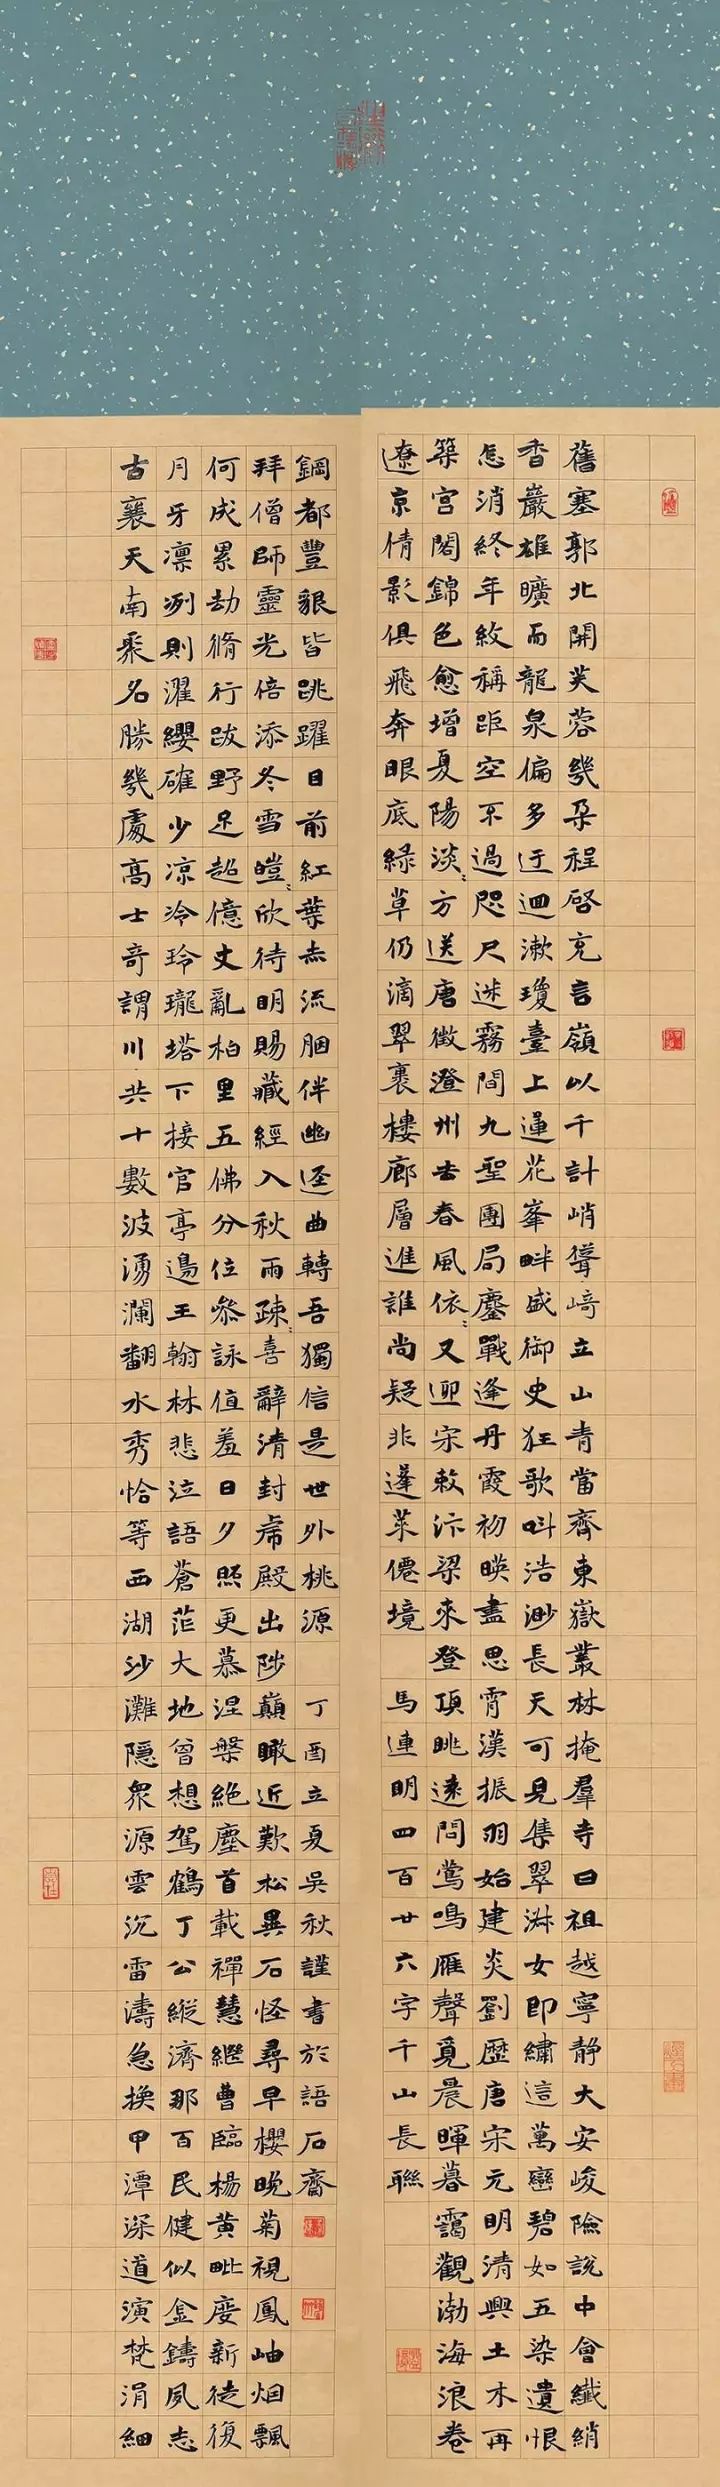 舊塞郭北開芙蓉幾朶程啓充言嶺以千計峭聳崎立山青當齊東嶽叢林掩羣寺曰祖越寧靜大安峻險說中會纖綃
香巖雄曠而龍泉偏多迂迴漱瓊臺上蓮花峯畔盛御史狂歌呌浩渺長天可見集翠女即繡這萬巒碧如五染遺恨
怎消終年紋稱距空不過咫尺迷霧間九聖團局鏖戰逢丹霞初暎盡思霄漢振羽始建炎劉歷唐宋元明清興土木再
築宮閣錦色愈增夏陽淡淡方送唐徵澄州去春風依依又迎宋敕汴梁來登頂眺遠問鶯鳴雁聲覓晨暉暮靄觀渤海浪卷
遼京倩影俱飛奔眼底綠草仍滴翠裹樓廊層進誰尚疑非蓬萊僊境
馬連明四百廿六字千山長聯
古襄天南聚名勝幾處高士奇謂川共十數波湧瀾翻水秀恰等西湖沙灘隱衆源雲沉雷濤急換甲潭深道演梵涓細
月牙凛冽則濯纓確少凉冷玲瓏塔下接官亭邊王翰林悲泣語蒼茫大地曾想駕鶴丁公縱濟那百民健似金鑄夙志
何成累劫脩行跋野足超億丈亂柏里五佛分位參詠值羞日夕照更慕涅槃絕塵首載禪慧繼曹臨楊黃毗度新徒復
拜僧師靈光倍添冬雪皚皚欣待明賜藏經入秋雨疎疎喜辭清封虎殿出陟巔瞰近歎松異石怪尋早櫻晚菊視鳳岫烟飄
鋼都豐貌皆跳躍目前紅葉赤流胭伴幽逕曲轉吾獨信是世外桃源
丁酉立夏吴秋謹書於語石齋